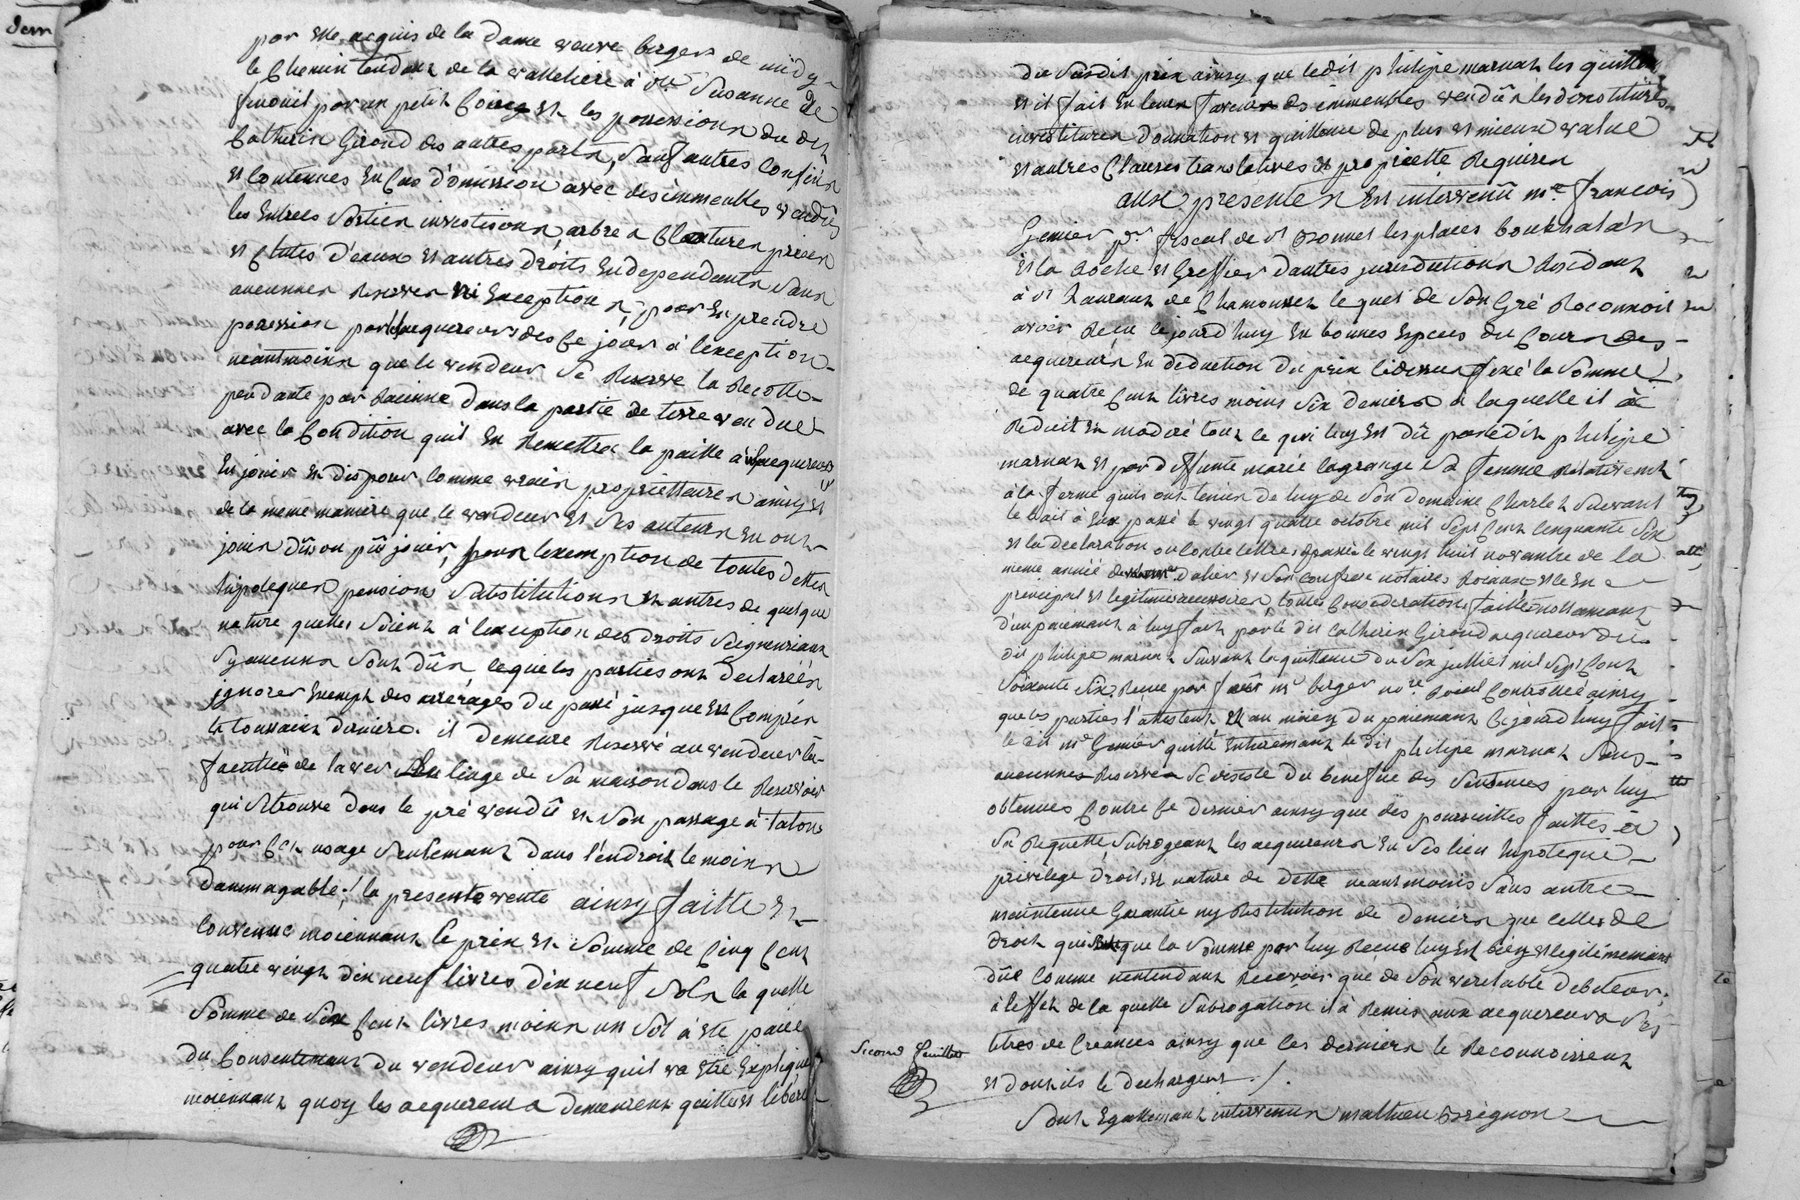 par elle acquis de la dame veuve berger de midy
le Chemin tendant de la valletiere à Ste Susanne de
par un petit Coing et les possessions du dit
Catherin Girond des autres parts, Sauf autres Confins
et Contennes En Cas d'omission avec des immeubles vendus
les Entrées Sorties investisons arbres Clotures prises
et Chutes d'eaux et autres droits En dependants Sans
aucunnes Reserves ni Exception pour En prendre
possession par les acquereurs des Ce jour à l'exception
néantmoins que le vendeur Se Reserve la Recolte
pendante par Racinne dans la partie de terre vendue
avec la Condition quil En Remettra la paille à acquereurs
En jouir et disposer Comme vrais propriettaires ainsy et
de la même manière que le vendeur et Ses auteurs En ont
joui dû ou pû jouir, pour l'exemption de toutes dettes
hipoteques pensions Substitutions et autres de quelque
nature quelles Soient à l'exception des droits Seigneuriaux
Sy aucuns Sont dûs lequel les parties ont declarées
ignorer Exempt des arrérages du passé jusques Et Compris
la toussaint dernière. il demeure Reservé au vendeur la
faculté de laver le linge de Sa maison dans le Reservoir
qui Se trouve dans le pré vendû et Son passage à talons
pour Cet usage Seulement dans l'endroit le moins
dammagable./ la presente vente ainsy faitte et
Convenue moiennant le prix et Somme de Cinq Cent
quatre vingt dix neuf livres dix neuf Sols la quelle
Somme de Six Cent livres moins un Sol à été paiée
du Consentement du vendeur ainsy quil va être Expliqué
moiennant quoy les acquereurs demeurent quittes et liberés
du Susdit prix ainsy que ledit philipe marnat les quitte
et il fait En leur faveur des immeubles vendûs les devestitures
investitures donnation et quittance de plus et mieux value
et autres Clauses translatives de propriette Requises
aux présentes Est intervenû me. françois
Genier pr. fiscal de St Bonnet les places
et la Roche et Greffier d'autres jurisdictions Residant
à St Laurent de Chamousset lequel de Son Gré Reconnoit
avoir Recu cejourd'huy En bonnes Especes du Cours des
acquereurs En déduction du prix Cidessus fixé la Somme
de quatre Cent livres moins Six deniers à laquelle il à
Reduit et moderé tout ce qui luy Est dû par ledit philipe
marnat et par deffunte marie lagrange Sa femme Relativement
à la ferme quils ont tenus de luy de Son domaine Charlet Suivant
le bail à Eux passé le vingt quatre octobre mil Sept Cent Cinquante Six
et la declaration ou Contre lettre passée le vingt huit novembre de la
même année dalier et Son confrere notaires Roiaux et ce En
principal et legitimes accessoires, toutes Considerations faittes notamment
d'un paiement à luy fait par le dit Catherin Girond acquereur du
dit philipe marnat Suivant la quittance du Six juillet mil Sept Cent
Soixante Six Recue par me berger nore. Roial Controllée ainsy
que les parties l'attestent et au moien du paiement Cejourd'huy fait
le dit me Genier quitte Entierement le dit philipe marnat Sans
aucunnes Reserves Se desiste du benefice des Sentences par luy
obtenues Contre Ce dernier ainsy que des poursuittes faittes à
Sa Requette, Subrogeant les acquereurs En Ses lieu hipoteque
privilege droit, et nature de dette neantmoins Sans autre
maintenue Garantie ny Restitution de deniers que Celles de
droit que la Somme par luy Recue luy Est bien et legitimement
dûe Comme n'entendant Recevoir que de Son veritable debiteur;
à l'effet de la quelle Subrogation il à Remis aux acquereurs Ses
titres de Creances ainsy que Ces derniers le Reconnoissent
Second feuillet
et dont ils le dechargent ./.
Sont Egalement intervenus mathieu